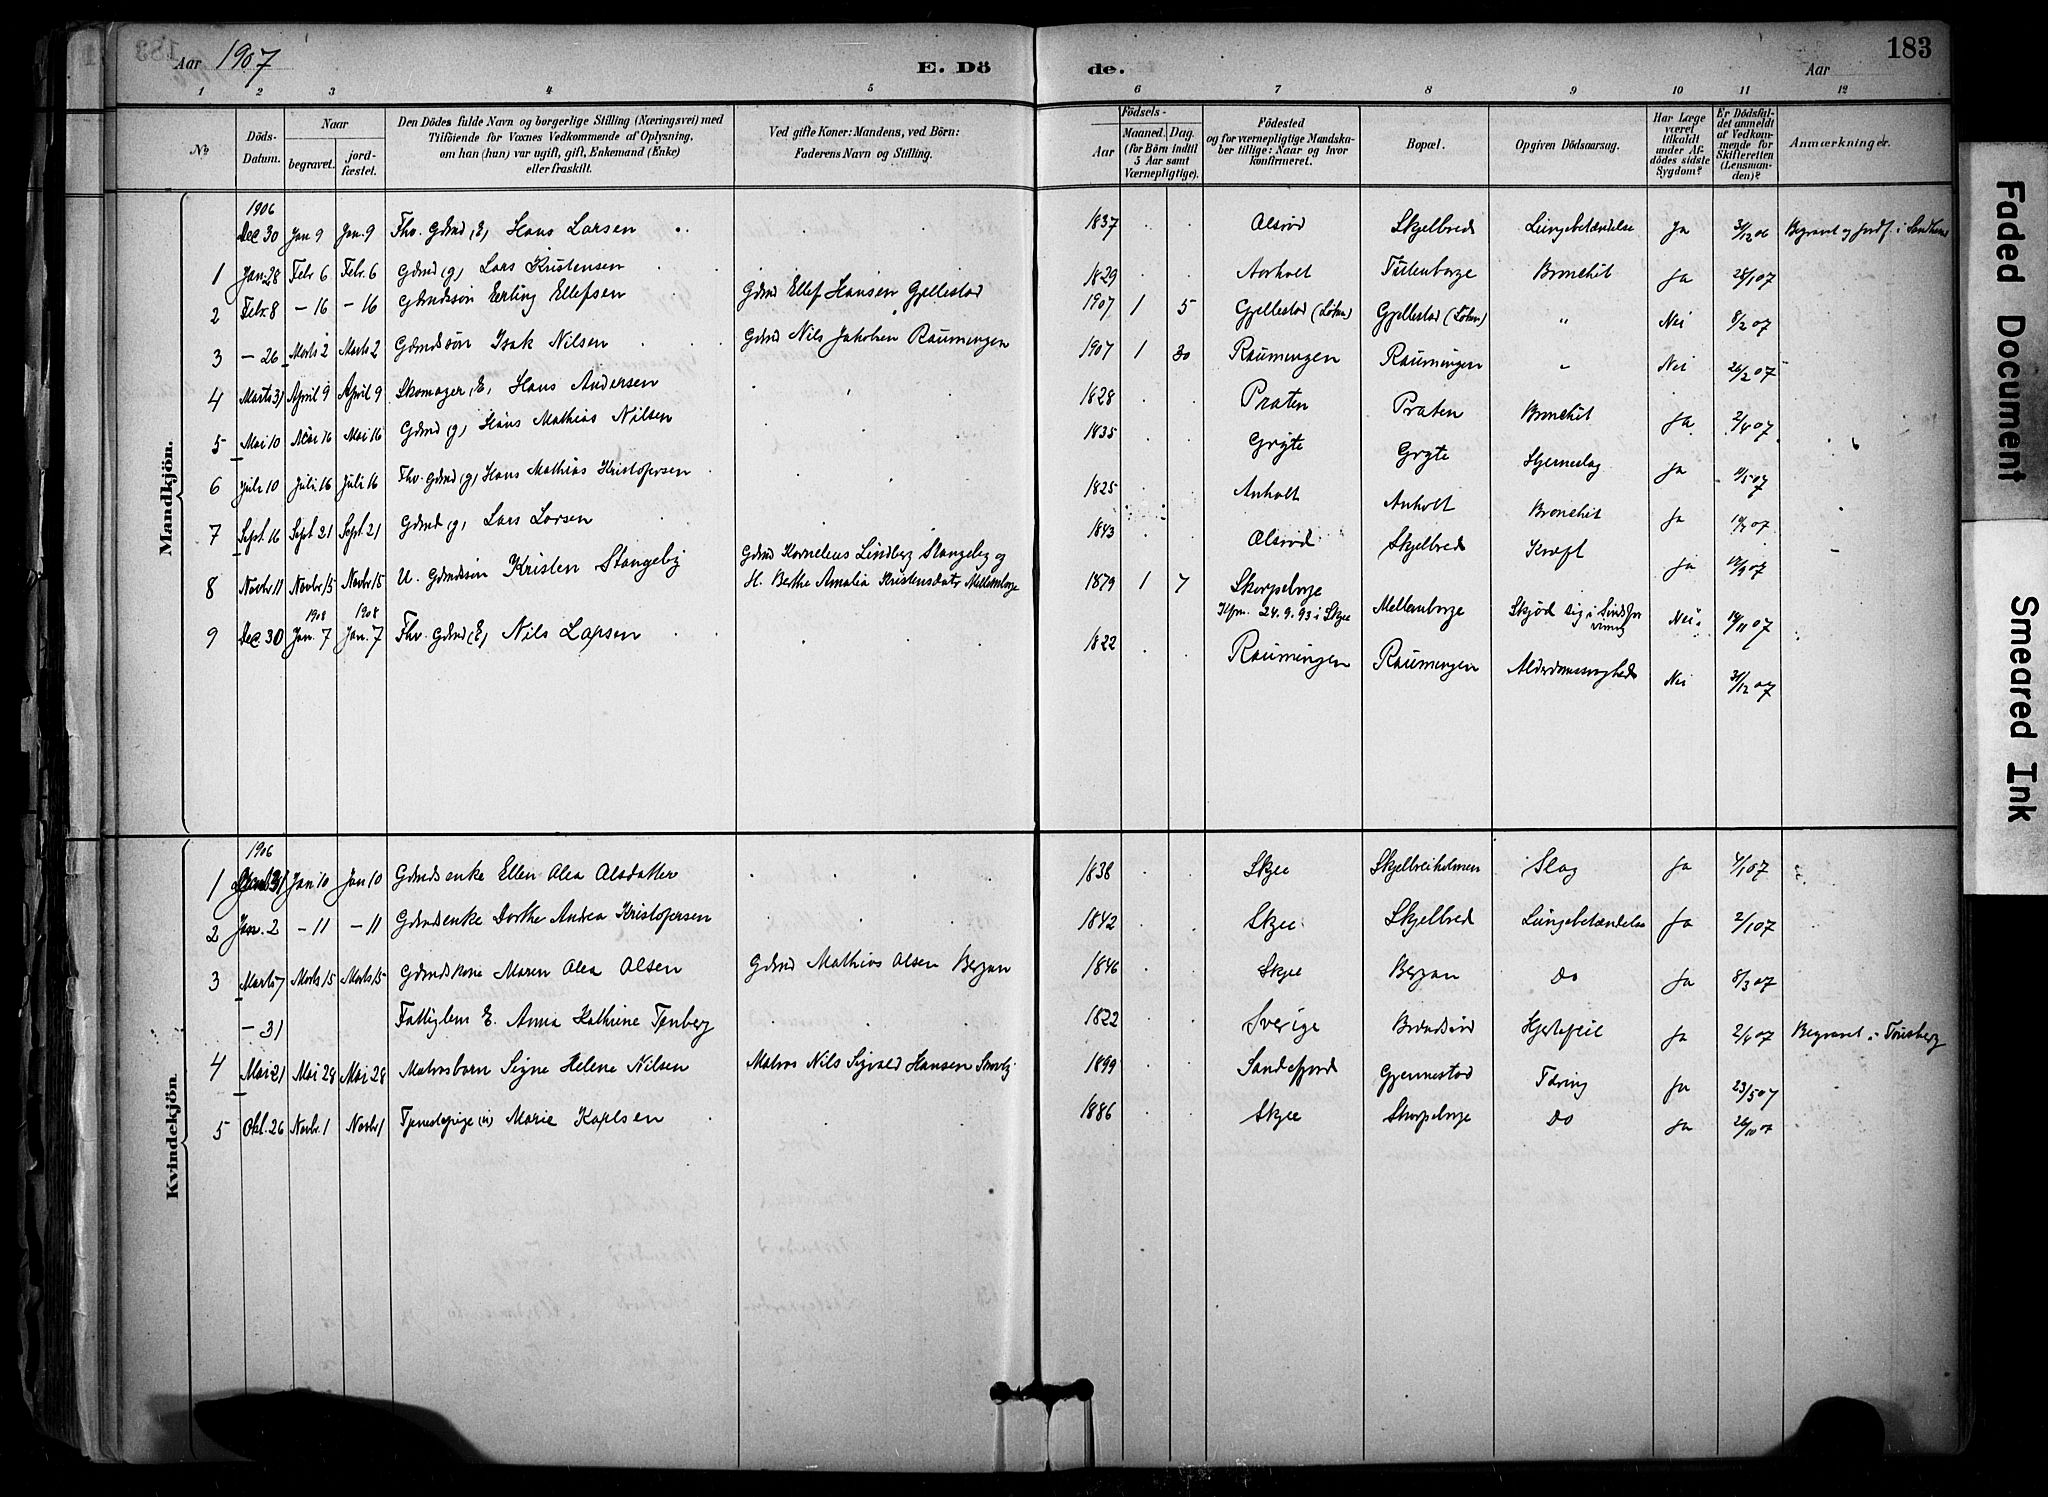 Aar 1907
E. Dö
de.
Aar
183
1 2 3 4 5 6 7 8 9 10 11 12
No
Döds-Datum.
Naar
begravet.
jord-fæstet.
Den Dödes fulde Navn og borgerlige Stilling (Næringsvei) med
Tilföiende for Voxnes Vedkommende af Oplysning,
om han (hun) var ugift, gift, Enkemand (Enke)
eller fraskilt.
Ved gifte Koner: Mandens, ved Börn:
Faderens Navn og Stilling.
Födsels-
Aar
Maaned. Dag.
(for Börn indtil
5 Aar samt
Værnepligtige).
Födested
og for værnepligtige Mandska-
ber tillige: Naar og hvor
konfirmeret.
Bopæl.
Opgiven Dödsaarsag.
Har Læge
været
tilkaldt
under Af-
dödes sidste
Sygdom?
Er Dödsfal-
det anmeldt
af Vedkom-
mende for
Skifteretten
(Lensman-
den)?
Anmærkninger.
Mandkjön.
1906
Dec 30 Jan 9 Jan. 9 Fhv. Gdmd (E) Hans Larsen 1837 Olsröd Skjelbred Lungebetændelse Ja 31/12 06 Begravet og jordf. i Sandherred
1 Jan. 28 Febr 6 Febr. 6 Gdmd (g) Lars Kristensen 1829 Aarholt Bronchit Ja 28/1 07
2 Febr. 8 - 16 - 16 Gdmdssön Erling Ellefsen Gdmd Ellef Hansen Gjellestad 1907 1 5 Gjellestad Gjellestad " Nei 8/2 07
3 - 26 Marts 2 Marts 2 Gdmdssön Isak Nilsen Gdmd Nils Jakobsen Raumingen 1907 1 30 Raumingen Raumingen " Nei 26/2 07
4 Marts 31 April 9 April 9 Skomager (E) Hans Andersen 1828 Praten Praten Bronchit Ja 2/4 07
5 Mai 10 Mai 16 Mai 16 Gdmd (g) Hans Mathias Nilsen 1835 Gryte Gryte Hjerneslag Ja 11/5 07
6 Juli 10 Juli 16 Juli 16 Fhv. Gdmd (g) Hans Mathias Kristofersen 1825 Anholt Anholt Bronchit Ja
7 Sept. 16 Sept. 21 Sept. 21 Gdmd (g) Lars Larsen 1843 Olsröd Skjelbred Kræft Ja
8 Novbr 11 Novbr 15 Novbr 15 U. Gdmdssön Kristen Stangeby Gdmd Kornelius Lindberg Stangeby og
H. Berthe Amalia Kristensdatr Mellemborge 1879 1 7 Skorpeborge
Kfm. 24.9.93 i Skjee Mellemborge Skjöd sig i Sindsfor
virring Nei 14/11 07
1908 1908
9 Dec. 30 Jan. 7 Jan. 7 Fhv. Gdmd (E) Nils Larsen 1822 Raumingen Raumingen Alderdomssvaghed Nei 31/12 07
Kvindekjön
1906
1 31 Jan 10 Jan 10 Gdmdsenke Ellen Olea Olsdatter 1838 Skjee Skjelbreiholmen Slag Ja
2 Jan. 2 - 11 - 11 Gdmdsenke Dorthe Andrea Kristofersen 1842 Skjee Skjelbred Lungebetændelse Ja 2/1 07
3 Marts 7 Marts 15 Marts 15 Gdmdskone Maren Olea Olsen Gdmd Mathias Olsen Berjan 1846 Skjee Berjan Do Ja 8/3 07
- 31 Fattiglem E. Anna Kathrine Tönberg 1822 Sverige Hjertefeil Ja 2/4 07 Begravet i Tönsberg
4 Mai 21 Mai 28 Mai 28 Matrosbarn Signe Helene Nilsen Matros Nils Sigvald Hansen 1899 Sandefjord Gjennestad Tæring Ja 23/5 07
5 Okt. 26 Novbr. 1 Novbr 1 Tjenestepige (u) Marie Karlsen 1886 Skjee Skorpeborge Do Ja 26/10 07
Faded Document
Smeared Ink